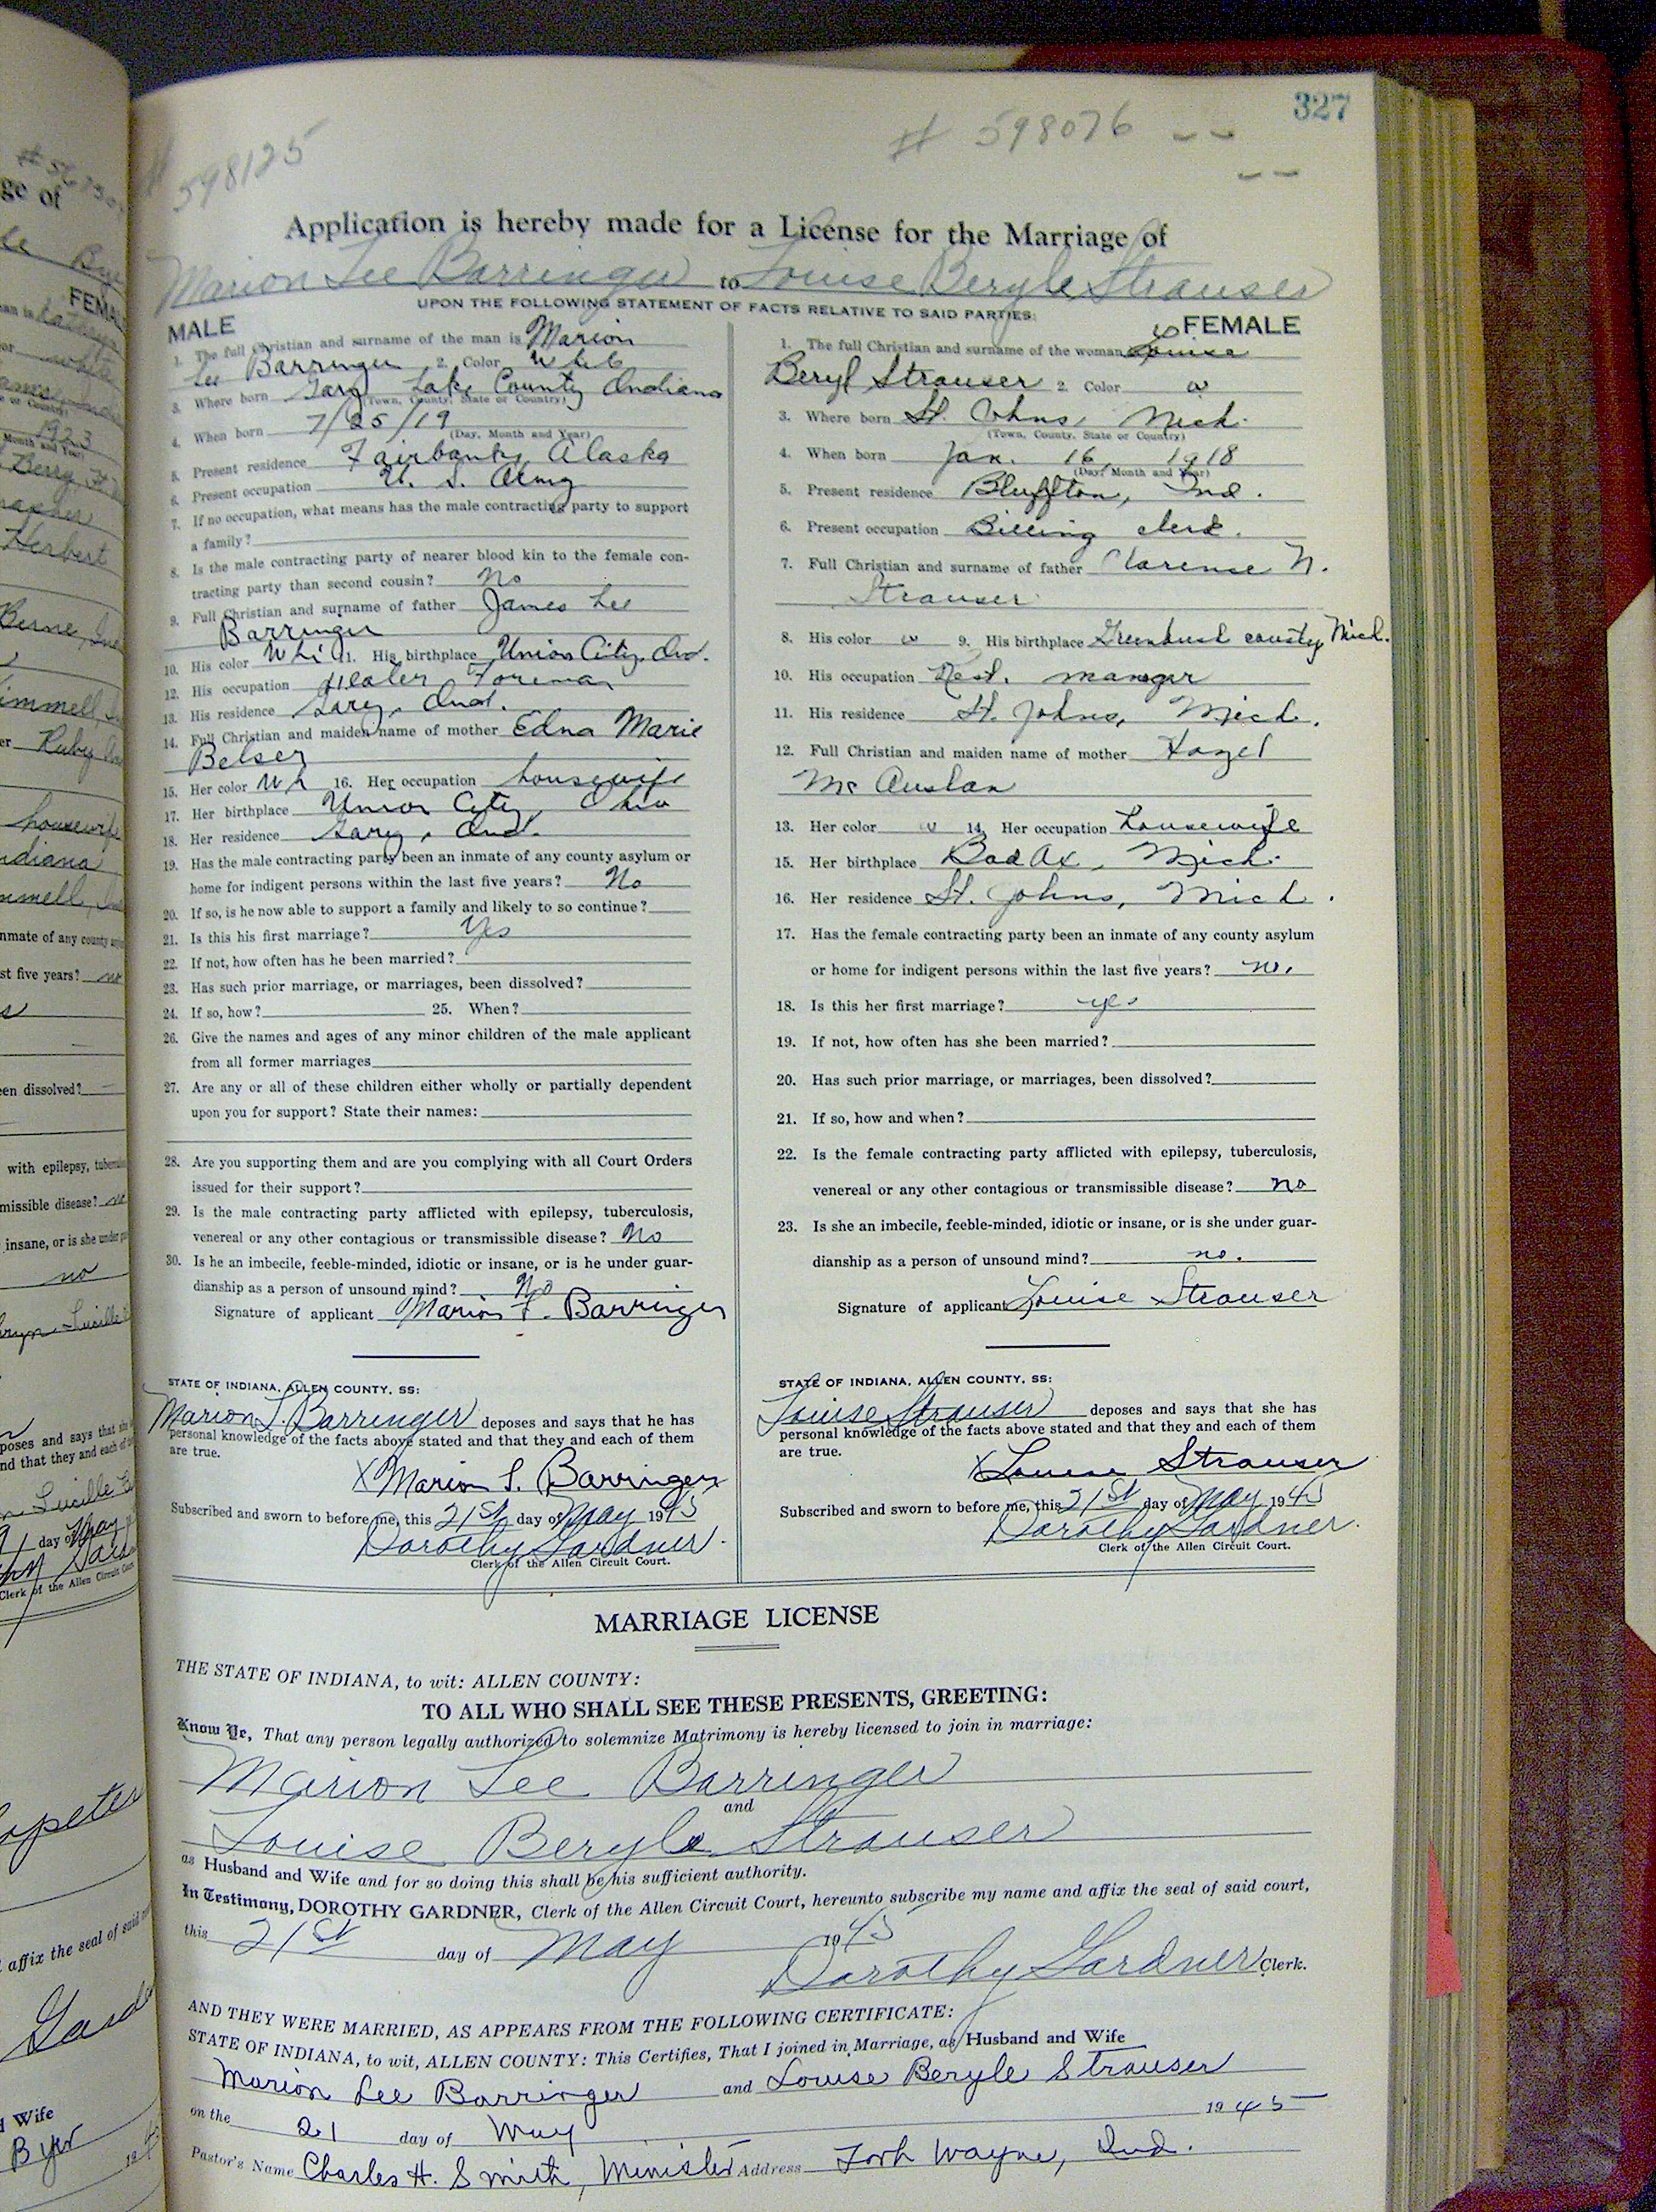 327
# 598076
598125
Application is hereby made for a License for the Marriage of
Marion Lee Barringer to Louise Beryle Strauser
UPON THE FOLLOWING STATEMENT OF FACTS RELATIVE TO SAID PARTIES:
MALE
1. The full Christian and surname of the man is Marion
Lee Barringer 2. Color White
3. Where born Gary Lake County Indiana
(Town, County, State or Country)
4. When born 7/25/19
(Day, Month and Year)
5. Present residence Fairbanks Alaska
6. Present occupation U. S. Army
7. If no occupation, what means has the male contracting party to support
a family?
8. Is the male contracting party of nearer blood kin to the female con-
tracting party than second cousin? No
9. Full Christian and surname of father James Lee
Barringer
10. His color Whi 11. His birthplace Union City, Ind.
12. His occupation Foreman
13. His residence Gary, Ind.
14. Full Christian and maiden name of mother Edna Marie
Belser
15. Her color Wh 16. Her occupation housewife
17. Her birthplace Union City, Ohio
18. Her residence Gary, Ind.
19. Has the male contracting party been an inmate of any county asylum or
home for indigent persons within the last five years? No
20. If so, is he now able to support a family and likely to so continue?
21. Is this his first marriage? Yes
22. If not, how often has he been married?
23. Has such prior marriage, or marriages, been dissolved?
24. If so, how? 25. When?
26. Give the names and ages of any minor children of the male applicant
from all former marriages
27. Are any or all of these children either wholly or partially dependent
upon you for support? State their names:
28. Are you supporting them and are you complying with all Court Orders
issued for their support?
29. Is the male contracting party afflicted with epilepsy, tuberculosis,
venereal or any other contagious or transmissible disease? No
30. Is he an imbecile, feeble-minded, idiotic or insane, or is he under guar-
dianship as a person of unsound mind? No
Signature of applicant Marion L. Barringer
STATE OF INDIANA, ALLEN COUNTY, SS:
Marion L. Barringer deposes and says that he has
personal knowledge of the facts above stated and that they and each of them
are true.
X Marion L. Barringer
Subscribed and sworn to before me, this 21st day of May 1945
Dorothy Gardner
Clerk of the Allen Circuit Court.
FEMALE
1. The full Christian and surname of the woman is Louise
Beryl Strauser 2. Color w
3. Where born St. Johns, Mich.
(Town, County, State or Country)
4. When born Jan. 16, 1918
(Day, Month and Year)
5. Present residence Bluffton, Ind.
6. Present occupation Billing clerk.
7. Full Christian and surname of father Clarence N.
Strauser
8. His color w 9. His birthplace Greenbush county, Mich.
10. His occupation Rest. manager
11. His residence St. Johns, Mich.
12. Full Christian and maiden name of mother Hazel
McAuslan
13. Her color w 14. Her occupation housewife
15. Her birthplace Bad Ax, Mich.
16. Her residence St. Johns, Mich.
17. Has the female contracting party been an inmate of any county asylum
or home for indigent persons within the last five years? no.
18. Is this her first marriage? yes
19. If not, how often has she been married?
20. Has such prior marriage, or marriages, been dissolved?
21. If so, how and when?
22. Is the female contracting party afflicted with epilepsy, tuberculosis,
venereal or any other contagious or transmissible disease? no
23. Is she an imbecile, feeble-minded, idiotic or insane, or is she under guar-
dianship as a person of unsound mind? no.
Signature of applicant Louise Strauser
STATE OF INDIANA, ALLEN COUNTY, SS:
Louise Strauser deposes and says that she has
personal knowledge of the facts above stated and that they and each of them
are true.
X Louise Strauser
Subscribed and sworn to before me, this 21st day of May 1945
Dorothy Gardner.
Clerk of the Allen Circuit Court.
MARRIAGE LICENSE
THE STATE OF INDIANA, to wit: ALLEN COUNTY:
TO ALL WHO SHALL SEE THESE PRESENTS, GREETING:
Know Ye, That any person legally authorized to solemnize Matrimony is hereby licensed to join in marriage:
Marion Lee Barringer
and
Louise Beryle Strauser
as Husband and Wife and for so doing this shall be his sufficient authority.
In Testimony, DOROTHY GARDNER, Clerk of the Allen Circuit Court, hereunto subscribe my name and affix the seal of said court,
this 21st day of May 1945
Dorothy Gardner Clerk.
AND THEY WERE MARRIED, AS APPEARS FROM THE FOLLOWING CERTIFICATE:
STATE OF INDIANA, to wit, ALLEN COUNTY: This Certifies, That I joined in Marriage, as Husband and Wife
Marion Lee Barringer and Louise Beryle Strauser
on the 21 day of May 1945
Pastor's Name Charles H. Smith, Minister Address Fort Wayne, Ind.